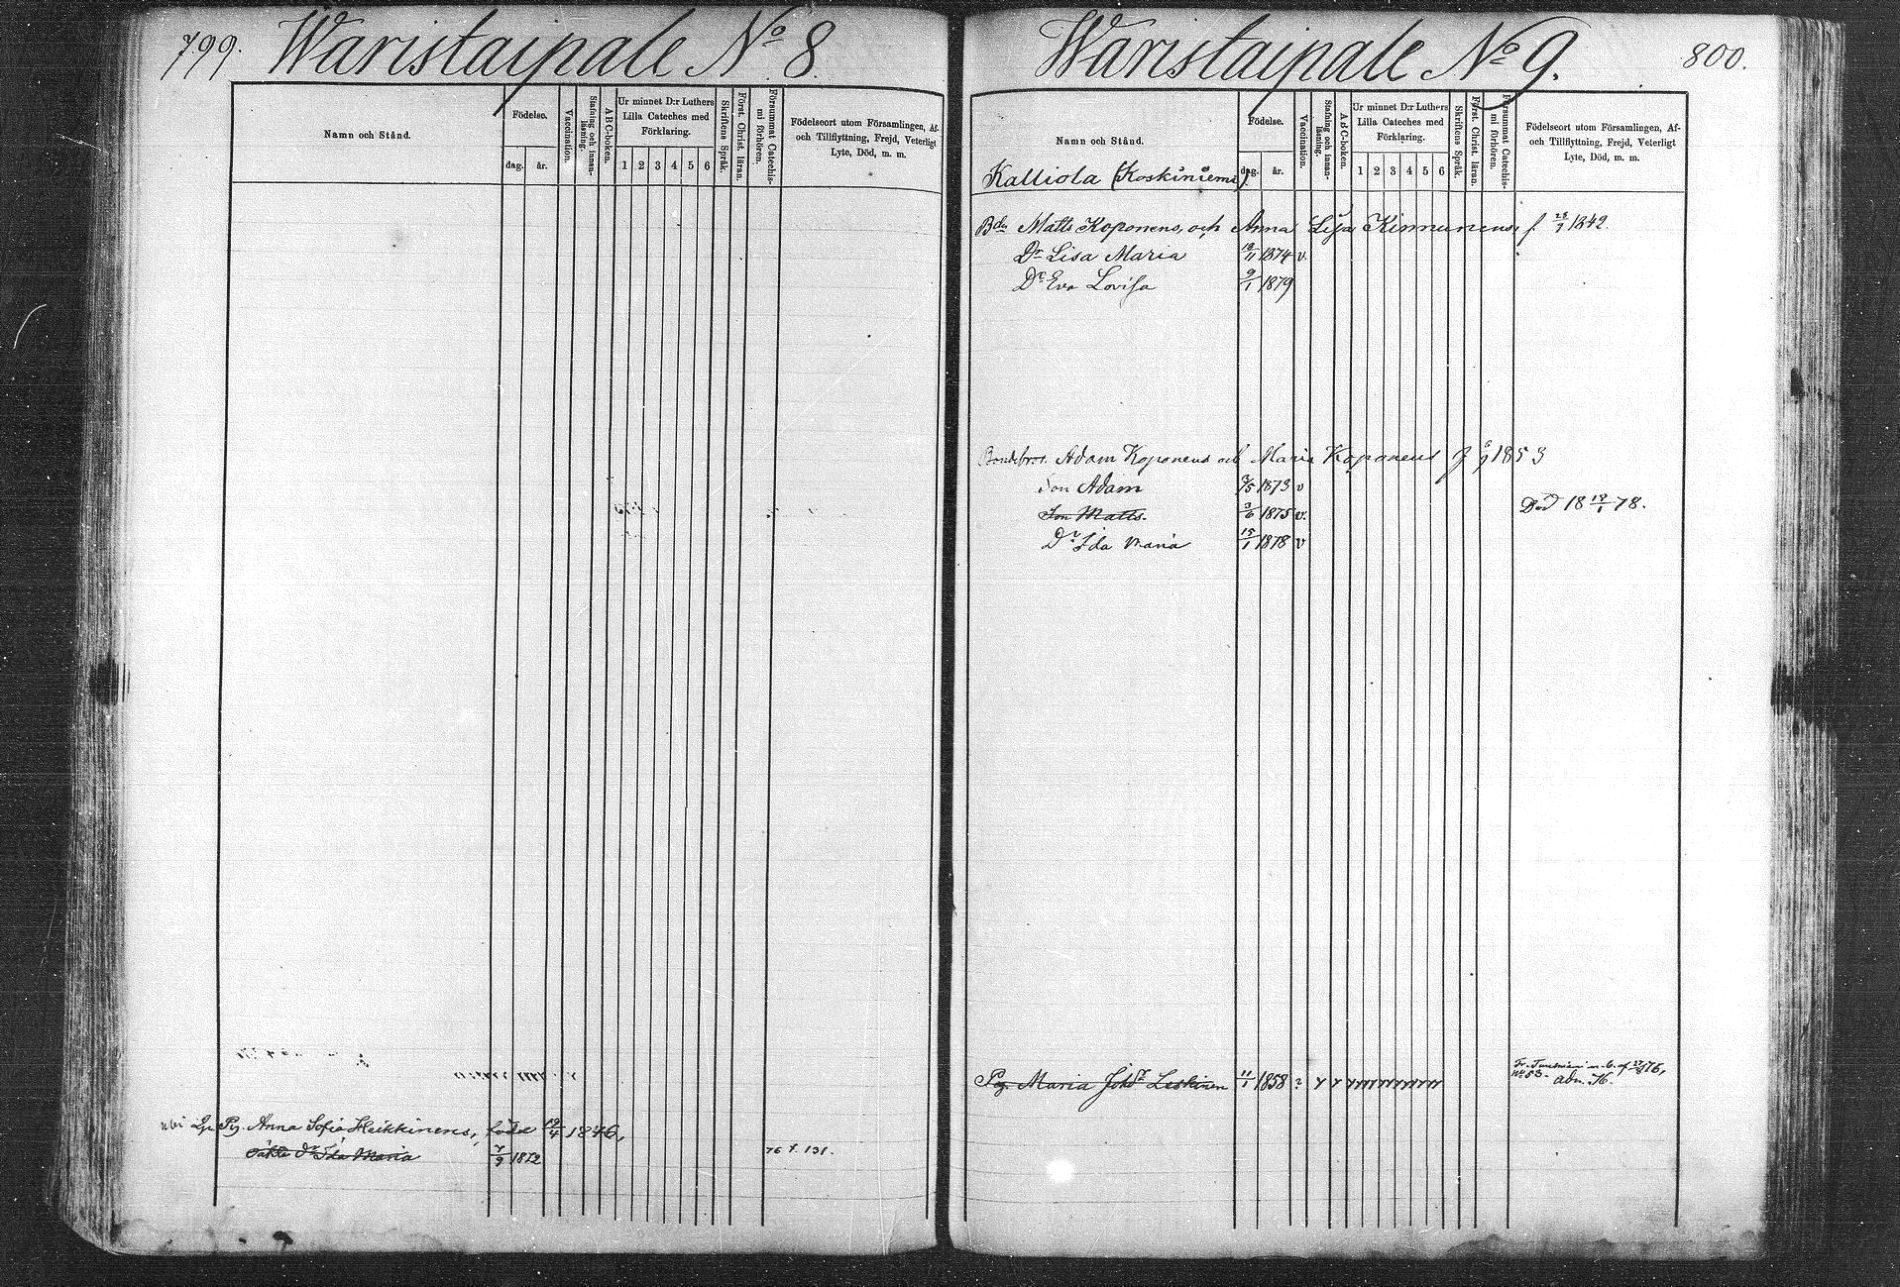 799. Waristaipale No 8.
Namn och Stånd.
Födelse.
dag. år.
Vaccination.
Stafning och innan-läsning.
ABC-boken.
Ur minnet D:r Luthers
Lilla Cateches med
Förklaring.
1 2 3 4 5 6
Skriftens Språk.
Först. Christ. läran.
Försummat Catechis-
mi förhören.
Födelseort utom Församlingen, Af-
och Tillflyttning, Frejd, Veterligt
Lyte, Död, m. m.
Pig. Anna Sofia Heikkinens, född 19/4 1846,
oäkta Dr Ida Maria 7/9 1872 76 f. 131.
Waristaipale No 9. 800.
Namn och Stånd.
Födelse.
dag. år.
Vaccination.
Stafning och innan-
läsning.
ABC-boken.
Ur minnet D:r Luthers
Lilla Cateches med
Förklaring.
1 2 3 4 5 6
Skriftens Språk.
Först. Christ. läran.
Försummat Catechis-
mi förhören.
Födelseort utom Församlingen, Af-
och Tillflyttning, Frejd, Veterligt
Lyte, Död, m. m.
Kalliola (Koskiniemi)
Bdn Matts Koponens, och Anna Lisa Kinnunens, f. 25/7 1842.
Dr Lisa Maria 10/11 1874 v.
Dr Eva Lovisa 9/1 1879
Bondebror. Adam Koponens och Maria Koponens f 6/9 1853
Son Adam 2/5 1873 v
Son Matts. 3/6 1875 v. Död 18 19/1 78.
Dr Ida Maria 15/1 1878 v
Pig. Maria Johdr Leskinen 11/1 1858